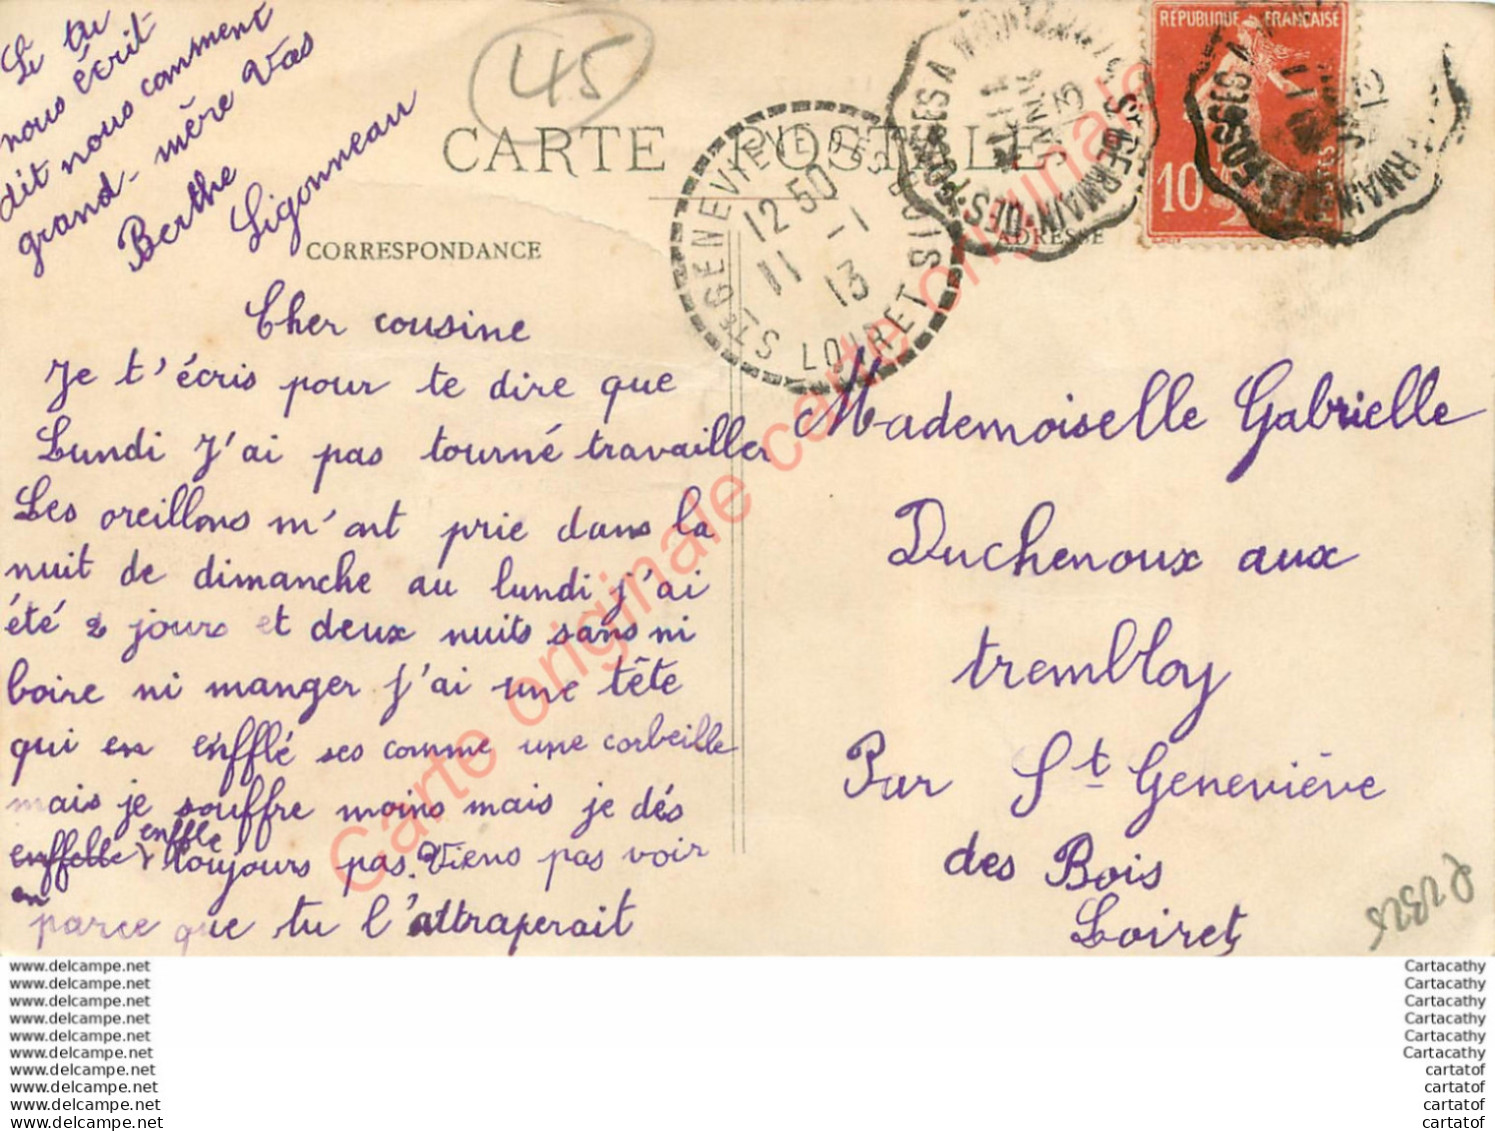 Se tu
nous écrit
dit nous comment
grand-mère Vas
Berthe
Ligonneau
45
CARTE POSTALE
CORRESPONDANCE
ADRESSE
RÉPUBLIQUE FRANÇAISE
10
STE GENEVIEVE DES BOIS
12 50
11 -1
13
LOIRET
ST GERMAIN-DES-FOSSES A
Cher cousine
Je t'écris pour te dire que
Lundi J'ai pas tourné travailler
Les oreillons m'ont prie dans la
nuit de dimanche au lundi j'ai
été 2 jours et deux nuits sans ni
boire ni manger j'ai une tête
qui en enfflé ses comme une corbeille
mais je souffre moins mais je dés
enffelle enffle toujours pas. Viens pas voir
en
parce que tu l'attraperait
Mademoiselle Gabrielle
Duchenoux aux
trembloy
Par St Geneviève
des Bois
Loiret
Carte originale carte originale
www.delcampe.net
www.delcampe.net
www.delcampe.net
www.delcampe.net
www.delcampe.net
www.delcampe.net
www.delcampe.net
www.delcampe.net
www.delcampe.net
www.delcampe.net
Cartacathy
Cartacathy
Cartacathy
Cartacathy
Cartacathy
Cartacathy
cartatof
cartatof
cartatof
cartatof